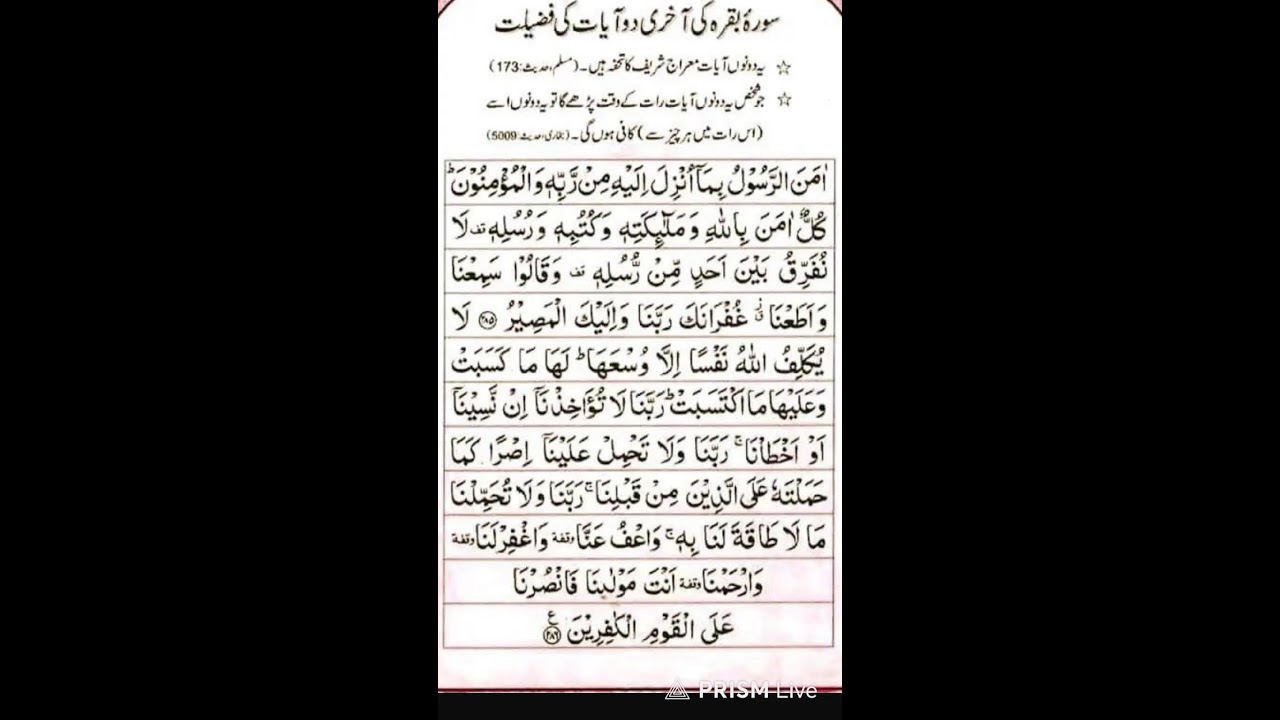 سورۂ بقرہ کی آخری دو آیات کی فضیلت
☆ یہ دونوں آیات معراج شریف کا تحفہ ہیں۔ (مسلم، حدیث: 173)
☆ جو شخص یہ دونوں آیات رات کے وقت پڑھے گا تو یہ دونوں اسے
(اس رات میں ہر چیز سے) کافی ہوں گی۔ (بخاری، حدیث: 5009)
اٰمَنَ الرَّسُوْلُ بِمَاۤ اُنْزِلَ اِلَيْهِ مِنْ رَّبِّهٖ وَالْمُؤْمِنُوْنَ ؕ
كُلٌّ اٰمَنَ بِاللّٰهِ وَمَلٰٓئِكَتِهٖ وَكُتُبِهٖ وَرُسُلِهٖ قف لَا
نُفَرِّقُ بَيْنَ اَحَدٍ مِّنْ رُّسُلِهٖ قف وَقَالُوْا سَمِعْنَا
وَاَطَعْنَا ق ز غُفْرَانَكَ رَبَّنَا وَاِلَيْكَ الْمَصِيْرُ ﴿۲۸۵﴾ لَا
يُكَلِّفُ اللّٰهُ نَفْسًا اِلَّا وُسْعَهَا ؕ لَهَا مَا كَسَبَتْ
وَعَلَيْهَا مَا اكْتَسَبَتْ ؕ رَبَّنَا لَا تُؤَاخِذْنَاۤ اِنْ نَّسِيْنَاۤ
اَوْ اَخْطَاْنَا ۚ رَبَّنَا وَلَا تَحْمِلْ عَلَيْنَاۤ اِصْرًا كَمَا
حَمَلْتَهٗ عَلَى الَّذِيْنَ مِنْ قَبْلِنَا ۚ رَبَّنَا وَلَا تُحَمِّلْنَا
مَا لَا طَاقَةَ لَنَا بِهٖ ۚ وَاعْفُ عَنَّا وقفة وَاغْفِرْ لَنَا وقفة
وَارْحَمْنَا وقفة اَنْتَ مَوْلٰىنَا فَانْصُرْنَا
عَلَى الْقَوْمِ الْكٰفِرِيْنَ ﴿۲۸۶﴾ ع
PRISM Live